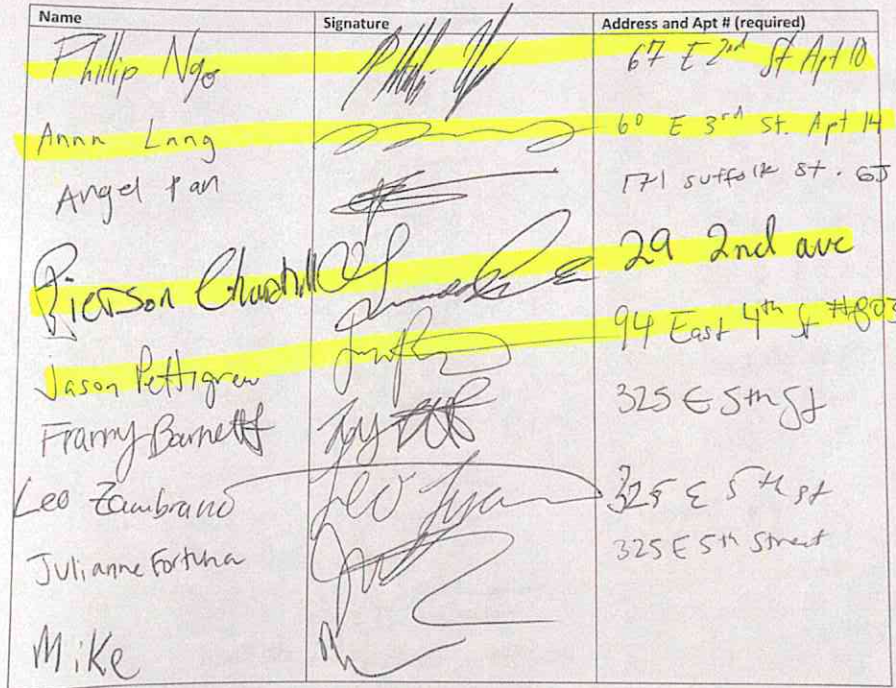 Name Signature Address and Apt # (required)
Phillip Ngo 67 E 2nd St Apt 10
Anna Lang 60 E 3rd St. Apt 14
Angel Pan 171 suffolk st. 6J
Pierson Churchill 29 2nd ave
Jason Pettigrew 94 East 4th St #803
Franny Barnett 325 E 5th St
Leo Zambrano Leo 325 E 5th st
Julianne Fortuna 325 E 5th Street
Mike